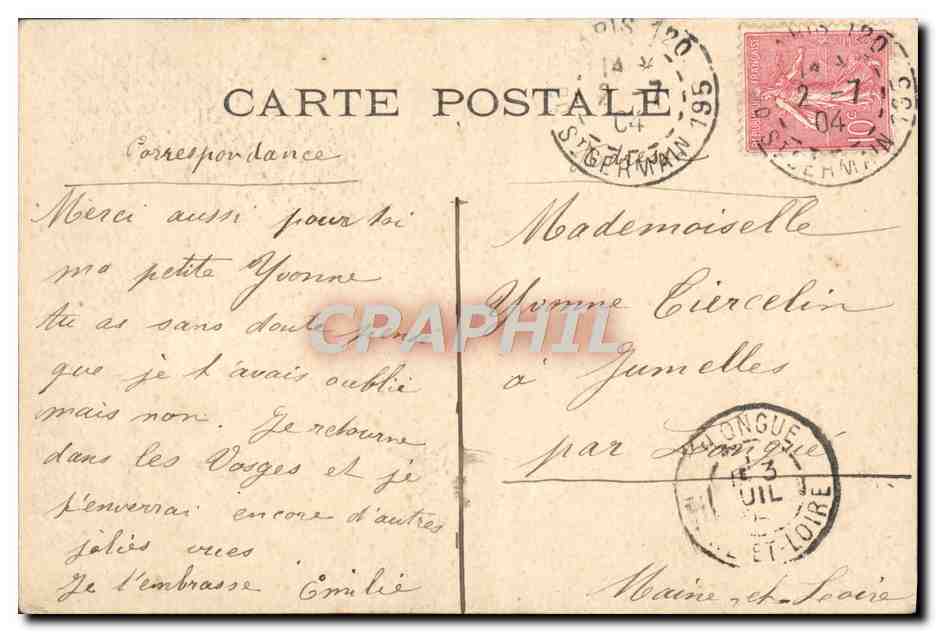 CARTE POSTALE
Correspondance
Merci aussi pour toi
ma petite Yvonne
tu as sans doute pensé
que je t'avais oublié
mais non. Je retourne
dans les Vosges et je
t'enverrai encore d'autres
jolies vues
Je t'embrasse Emilie
PARIS 120
14
2 -7
04
St GERMAIN 195
PARIS 120
14
2 -7
04
St GERMAIN 195
10c
Mademoiselle
Yvonne Tiercelin
à Jumelles
par Longué
Maine-et-Loire
LONGUE
3
JUIL
MAINE-ET-LOIRE
CPAPHIL